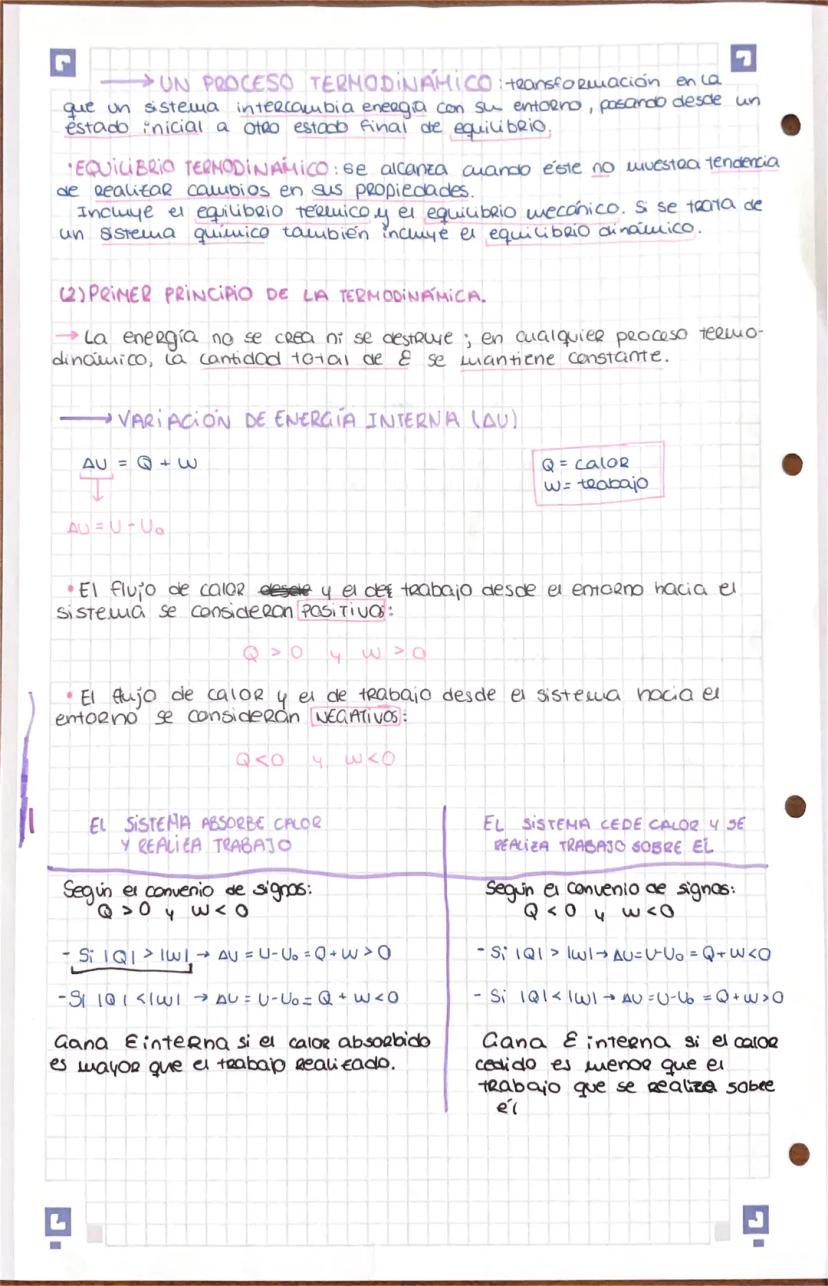 → UN PROCESO TERMODINÁMICO: transformación en la
que un sistema intercambia energía con su entorno, pasando desde un
estado inicial a otro estado final de equilibrio.
·EQUILIBRIO TERMODINÁMICO: se alcanza cuando éste no muestra tendencia
de realizar cambios en sus propiedades.
Incluye el eqilibrio térmico y el equilibrio mecánico. Si se trata de
un sistema químico también incluye el equilibrio dinámico.
(2) PRIMER PRINCIPIO DE LA TERMODINÁMICA.
→ La energía no se crea ni se destruye; en cualquier proceso termo-
dinámico, la cantidad total de E se mantiene constante.
→ VARIACIÓN DE ENERGÍA INTERNA (ΔU)
ΔU = Q + W
Q = calor
W = trabajo
ΔU = U - U₀
• El flujo de calor y el del trabajo desde el entorno hacia el
sistema se consideran POSITIVOS:
Q > 0 y W > 0
• El flujo de calor y el de trabajo desde el sistema hacia el
entorno se considerán NEGATIVOS:
Q<0 y W<0
EL SISTEMA ABSORBE CALOR
Y REALIZA TRABAJO
Según el convenio de signos:
Q > 0 y W < 0
- Si |Q| > |W| → ΔU = U-U₀ = Q+W > 0
- Si |Q| < |W| → ΔU = U-U₀ = Q + W < 0
Gana E interna si el calor absorbido
es mayor que el trabajo realizado.
EL SISTEMA CEDE CALOR Y SE
REALIZA TRABAJO SOBRE EL
Según el convenio de signos:
Q < 0 y W < 0
- Si |Q| > |W| → ΔU = U-U₀ = Q+W < 0
- Si |Q| < |W| → ΔU = U-U₀ = Q+W > 0
Gana E interna si el calor
cedido es menor que el
trabajo que se realiza sobre
él